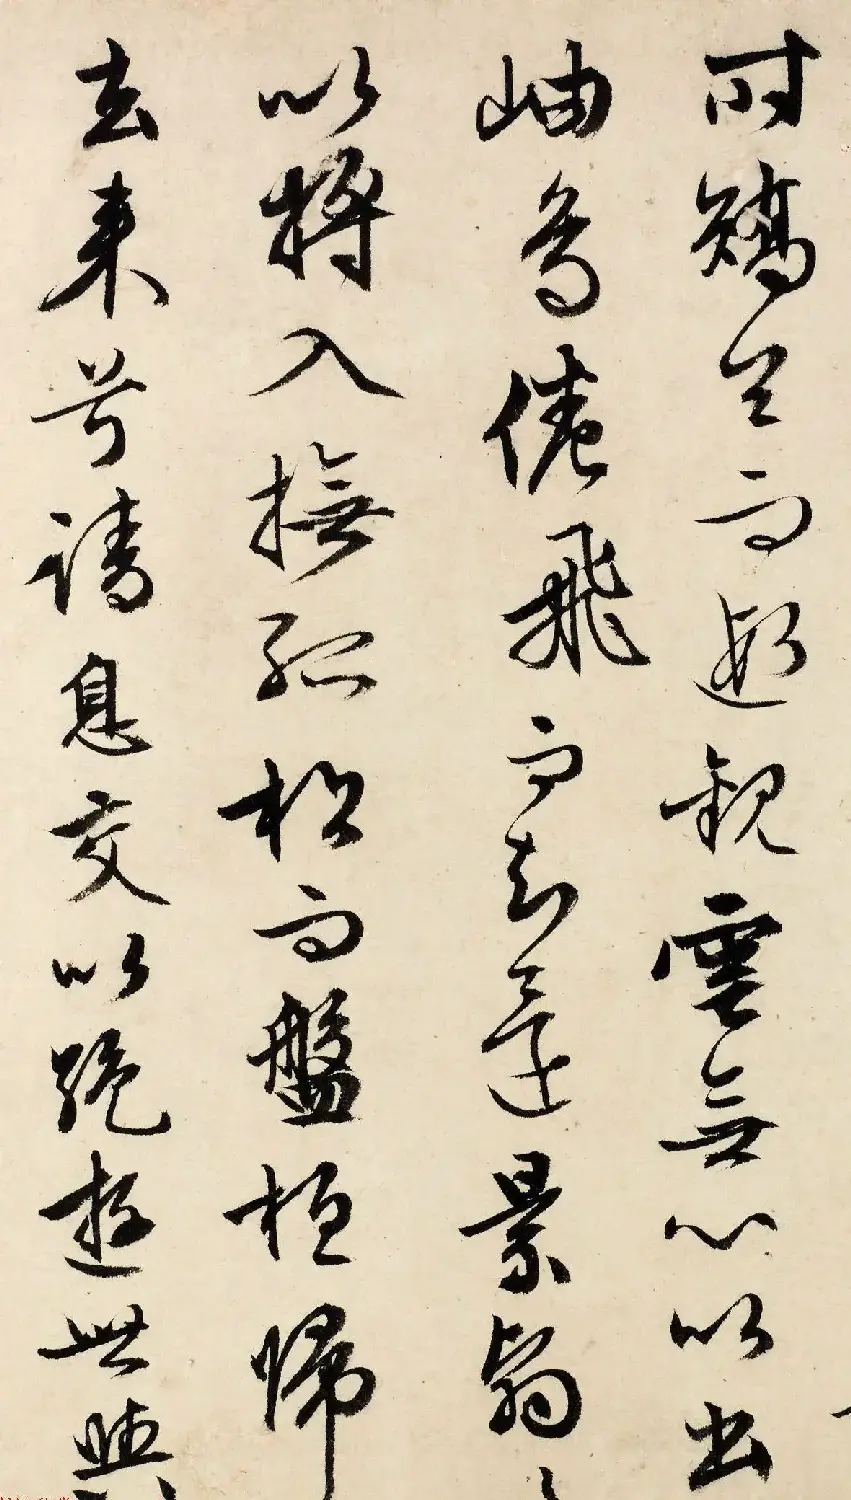 時矯首而遐觀雲無心以出
岫鳥倦飛而知還景翳
以將入撫孤松而盤桓歸
去來兮請息交以絕遊世與